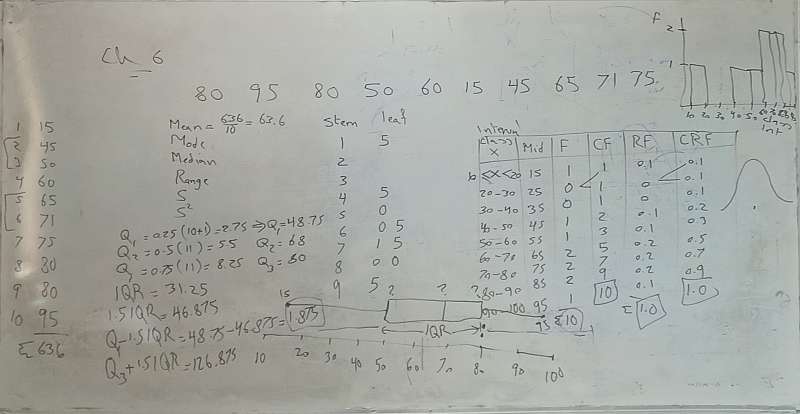 Ch 6
80 95 80 50 60 15 45 65 71 75
1 15
2 45
3 50
4 60
5 65
6 71
7 75
8 80
9 80
10 95
Σ 636
Mean = 636/10 = 63.6
Mode
Median
Range
S
S²
Q₁ = 0.25(10+1) = 2.75 ⇒ Q₁ = 48.75
Q₂ = 0.5(11) = 5.5 Q₂ = 68
Q₃ = 0.75(11) = 8.25 Q₃ = 80
IQR = 31.25
1.5IQR = 46.875
Q₁-1.5IQR = 48.75-46.875 = 1.875
Q₃+1.5IQR = 126.875
Stem leaf
1 5
2
3
4 5
5 0
6 0 5
7 1 5
8 0 0
9 5
Interval
class X Mid F CF RF CRF
10 ≤ X < 20 15 1 1 0.1 0.1
20-30 25 0 1 0 0.1
30-40 35 0 1 0 0.1
40-50 45 1 2 0.1 0.2
50-60 55 1 3 0.1 0.3
60-70 65 2 5 0.2 0.5
70-80 75 2 7 0.2 0.7
80-90 85 2 9 0.2 0.9
90-100 95 1 10 0.1 1.0
Σ 10 Σ 1.0
f
2
1
10 20 30 40 50
class
int
15
IQR
95
10 20 30 40 50 60 70 80 90 100